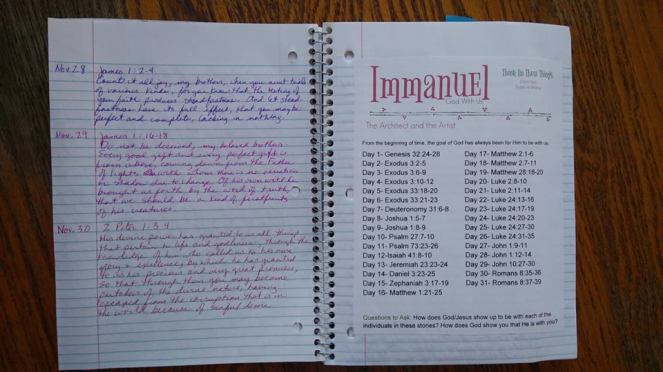 Nov. 28 James 1:2-4
Count it all joy, my brothers, when you meet trials
of various kinds, for you know that the testing of
your faith produces steadfastness. And let stead
fastness have its full effect, that you may be
perfect and complete, lacking in nothing.
Nov. 29 James 1:16-18
Do not be deceived, my beloved brothers.
Every good gift and every perfect gift is
from above, coming down from the Father
of lights with whom there is no variation
or shadow due to change. Of his own will he
brought us forth by the word of truth,
that we should be a kind of firstfruits
of his creatures.
Nov. 30 2 Peter 1:3-4
His divine power has granted to us all things
that pertain to life and godliness, through the
knowledge of him who called us to his own
glory & excellence, by which he has granted
to us his precious and very great promises,
so that through them you may become
partakers of the divine nature, having
escaped from the corruption that is in
the world because of sinful desire.
Immanuel
God With Us
Think On These Things
The Architect and the Artist
From the beginning of time, the goal of God has always been for Him to be with us.
Day 1- Genesis 32:24-28
Day 2- Exodus 3:2-5
Day 3- Exodus 3:6-9
Day 4- Exodus 3:10-12
Day 5- Exodus 33:18-20
Day 6- Exodus 33:21-23
Day 7- Deuteronomy 31:6-8
Day 8- Joshua 1:5-7
Day 9- Joshua 1:8-9
Day 10- Psalm 27:7-10
Day 11- Psalm 73:23-26
Day 12-Isaiah 41:8-10
Day 13- Jeremiah 23:23-24
Day 14- Daniel 3:23-25
Day 15- Zephaniah 3:17-19
Day 16- Matthew 1:21-25
Day 17- Matthew 2:1-6
Day 18- Matthew 2:7-11
Day 19- Matthew 28:18-20
Day 20- Luke 2:8-10
Day 21- Luke 2:11-14
Day 22- Luke 24:13-16
Day 23- Luke 24:17-19
Day 24- Luke 24:20-23
Day 25- Luke 24:27-30
Day 26- Luke 24:31-35
Day 27- John 1:9-11
Day 28- John 1:12-14
Day 29- John 10:27-30
Day 30- Romans 8:35-36
Day 31- Romans 8:37-39
Questions to Ask: How does God/Jesus show up to be with each of the
individuals in these stories? How does God show you that He is with you?